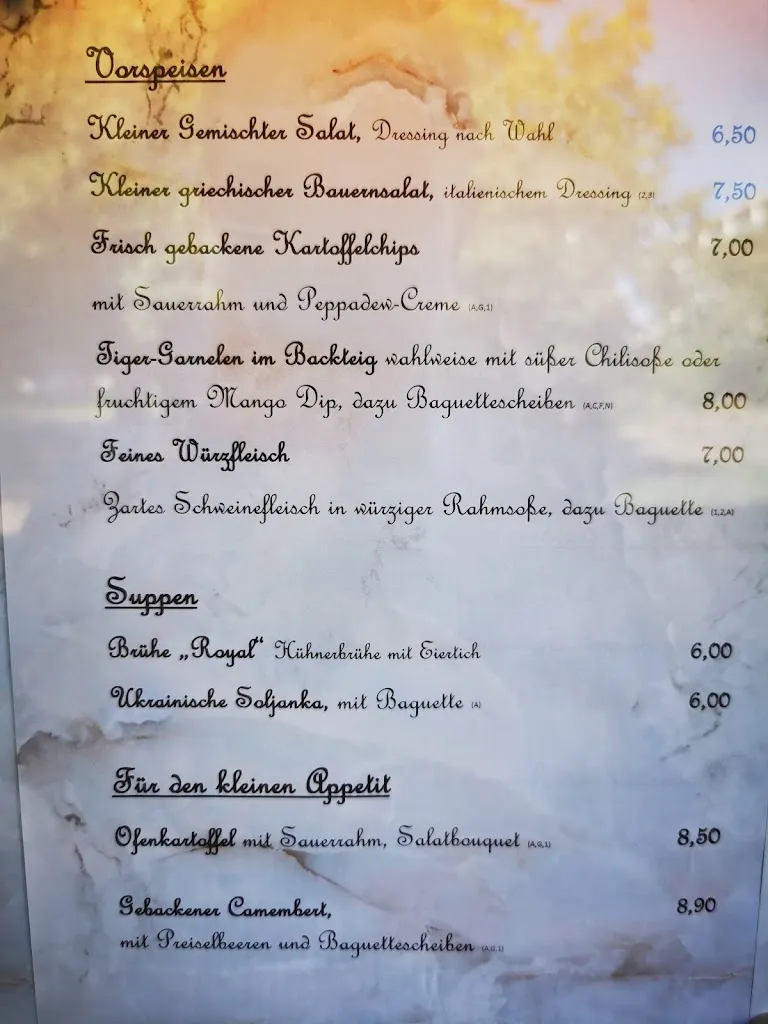 Vorspeisen
Kleiner Gemischter Salat, Dressing nach Wahl 6,50
Kleiner griechischer Bauernsalat, italienischem Dressing (2,9) 7,50
Frisch gebackene Kartoffelchips 7,00
mit Sauerrahm und Peppadew-Creme (A,G,1)
Tiger-Garnelen im Backteig wahlweise mit süßer Chilisoße oder
fruchtigem Mango Dip, dazu Baguettescheiben (A,C,F,N) 8,00
Feines Würzfleisch 7,00
Zartes Schweinefleisch in würziger Rahmsoße, dazu Baguette (1,2,A)
Suppen
Brühe „Royal“ Hühnerbrühe mit Eiertich 6,00
Ukrainische Soljanka, mit Baguette (A) 6,00
Für den kleinen Appetit
Ofenkartoffel mit Sauerrahm, Salatbouquet (A,G,1) 8,50
Gebackener Camembert, 8,90
mit Preiselbeeren und Baguettescheiben (A,G,1)